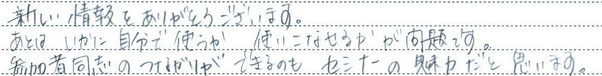 新しい情報をありがとうございます。
あとは いかに自分で使うか 使いこなせるかが問題です。
参加者同志のつながりができるのも セミナーの魅力だと思います。